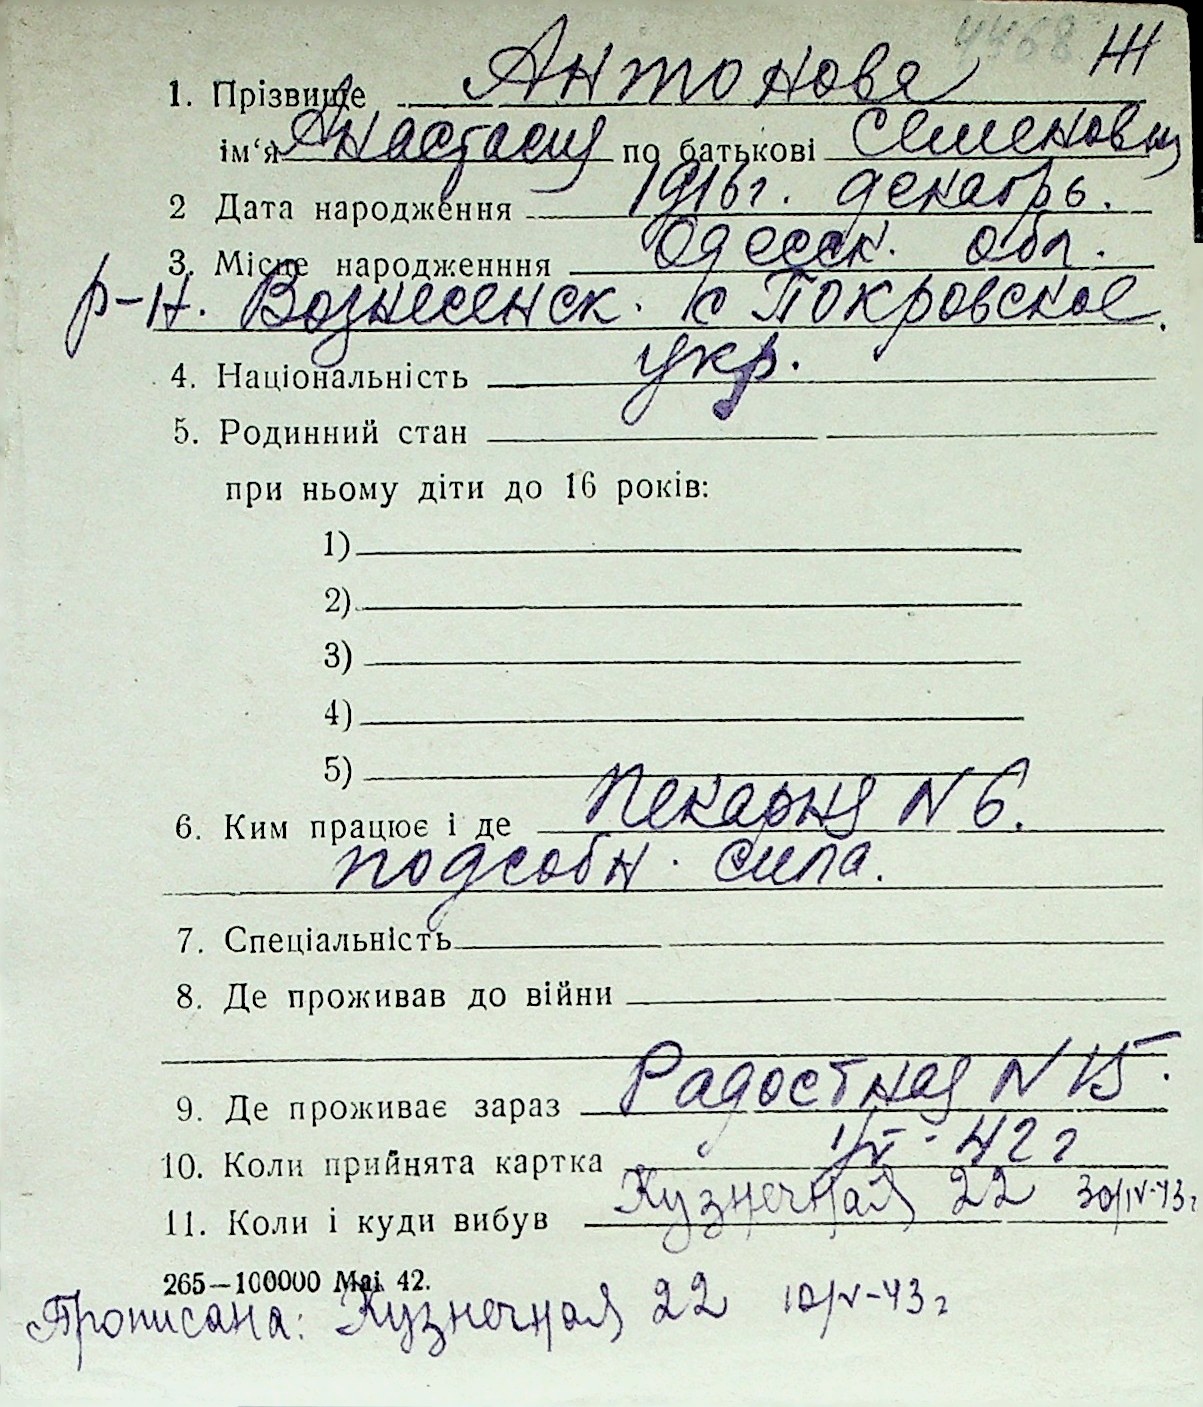 4468 Ж
1. Прізвище Антонова
ім‘я Анастасия по батькові Семеновна
2 Дата народження 1916 г. декабрь.
3. Місце народженння Одесск. обл.
р-н. Вознесенск. с Покровское.
4. Національність укр.
5. Родинний стан
при ньому діти до 16 років:
1)
2)
3)
4)
5)
6. Ким працює і де Пекарня N 6.
подсобн. сила.
7. Спеціальність
8. Де проживав до війни
9. Де проживає зараз Радостная N 15.
10. Коли прийнята картка 1/V - 42 г
11. Коли і куди вибув Кузнечная 22 30/IV-43 г
265—100000 Маі 42.
Прописана: Кузнечная 22 10/V-43 г